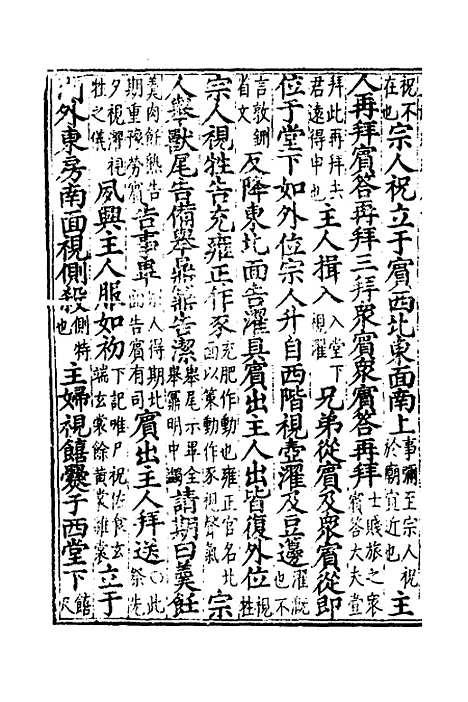 祝不在也宗人祝立于賓西北東面南上事彌至宗人祝於廟宜近也主
人再拜賓答再拜三拜衆賓衆賓答再拜士賤旅之衆賓答大夫壹
拜此再拜共君遠得申也主人揖入入堂下視濯兄弟從賓及衆賓從即
位于堂下如外位宗人升自西階視壺濯及豆籩濯溉也不
言敦鉶省文反降東北面告濯具賓出主人出皆復外位視牲
宗人視牲告充雍正作豕充肥作動也雍正官名北面以策動作豕視聲氣宗
人舉獸尾告備舉鼎鼏告潔舉尾示畢全舉鼏明中蠲請期曰羹飪
羹肉飪熟告期重豫勞賓告事畢宗人得期北面告賓有司賓出主人拜送○此祭先
夕視濯視牲之儀夙興主人服如初下記唯尸祝佐食玄端玄裳餘黃裳雜裳立于
門外東房南面視側殺側特也主婦視饎爨于西堂下饎尺